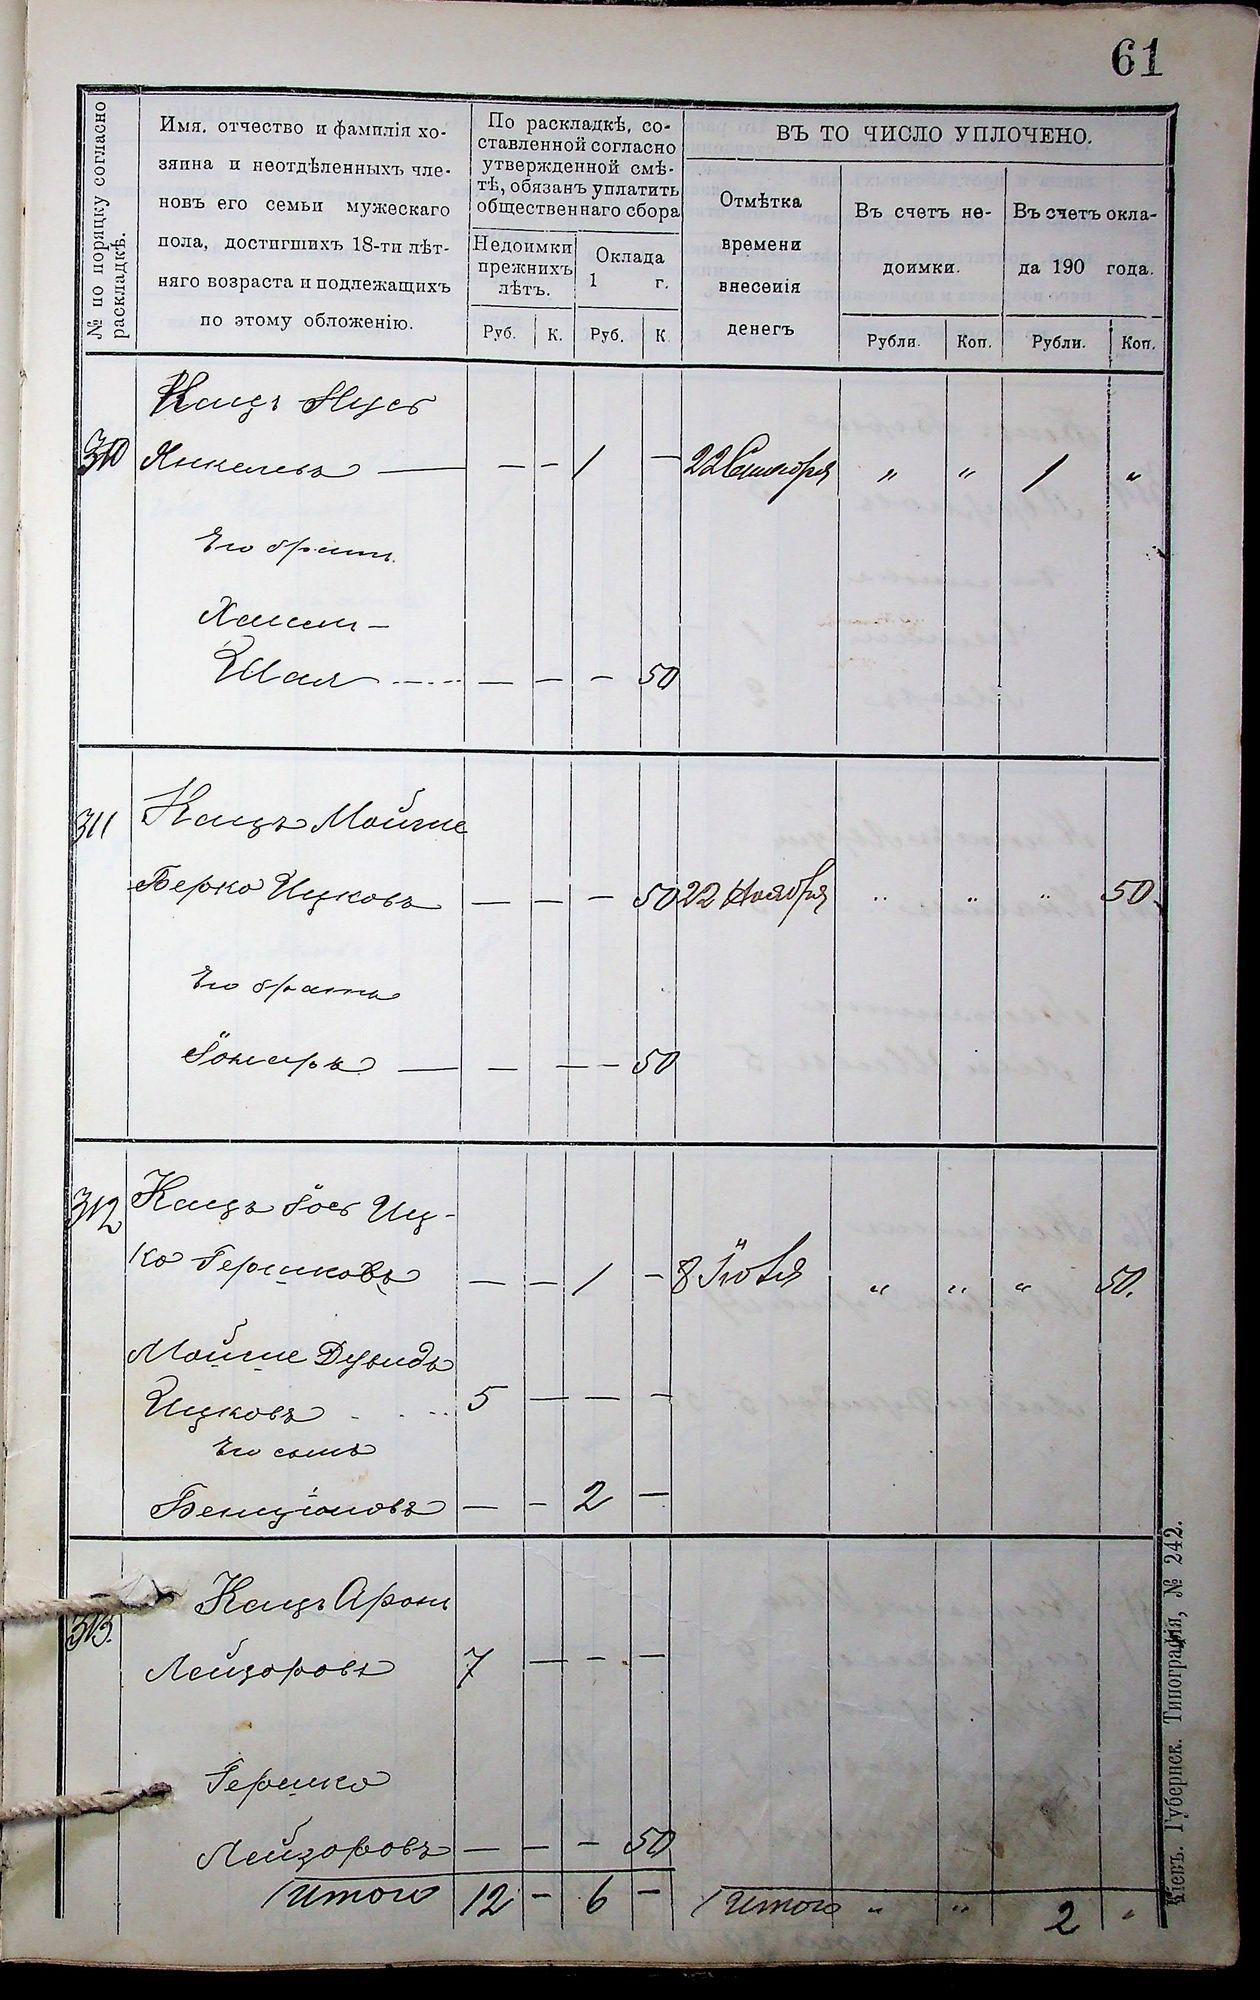 61
№ по порядку согласно раскладкѣ.
Имя, отчество и фамилія хо-
зяина и неотдѣленныхъ чле-
новъ его семьи мужескаго
пола, достигшихъ 18-ти лѣт-
няго возраста и подлежащихъ
по этому обложенію.
По раскладкѣ, со-
ставленной согласно
утвержденной смѣ-
тѣ, обязанъ уплатить
общественнаго сбора
Недоимки
прежнихъ
лѣтъ.
Оклада
1 г.
Руб. К. Руб. К
ВЪ ТО ЧИСЛО УПЛОЧЕНО.
Отмѣтка
времени
внесенія
денегъ
Въ счетъ не-
доимки.
Въ счетъ окла-
да 190 года.
Рубли. Коп. Рубли. Коп.
Кацъ
310 Янкелевъ — — — 1 — 22 Сентября " " 1 "
Его братъ
Хаим-
Шая — — — 50
311 Кацъ Мойше
Берко Ицковъ — — — 50 22 Ноября " " " 50.
Его братъ
— — — 50
312 Кацъ Іось Иц-
ко Гершковъ — — 1 — 8 Іюля " " " 50.
Мойше Дувидъ
Ицковъ 5 — — —
Его сынъ
Бенціонъ — — 2 —
313. Кацъ Аронъ
Лейзоровъ 7 — — —
Гершко
Лейзоровъ — — — 50
Итого 12 — 6 — Итого " " 2 "
Кіевъ. Губернск. Типографія, № 242.